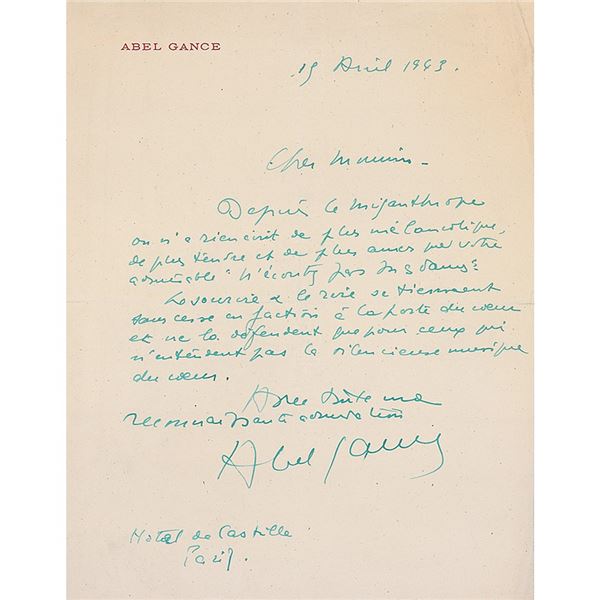 ABEL GANCE
19 Avril 1943.
Cher Monsieur -
Depuis le Misanthrope
on n'a rien écrit de plus mélancolique,
de plus tendre et de plus amer que votre
admirable "N'écoutez pas Mesdames"
Le sourire & le rire se tiennent
sans cesse en faction à la porte du cœur
et ne la défendent que pour ceux qui
n'entendent pas la silencieuse musique
du cœur.
Avec toute ma
reconnaissante admiration
Abel Gance
Hotel de Castille
Paris.